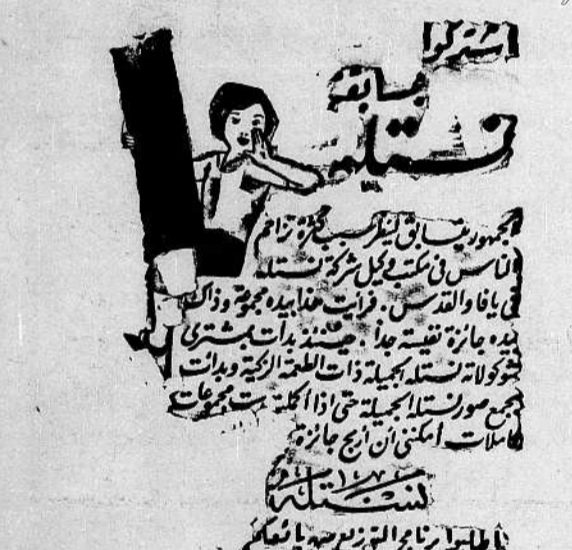 اشتركوا
بمسابقة
نستله
الجمهور يتسابق لينظر سبب كثرة تزاحم
الناس في مكتب وكيل شركة نستله
في يافا والقدس. فرأيت هذا بيده مجموعة وذاك
بيده جائزة نفيسة جداً. حينئذ بدأت بمشترى
شوكولاته نستله الجميلة ذات الطعمة الزكية وبدأت
بجمع صور نستله الجميلة حتى اذا اكملت ست مجموعات
كاملات أمكنني ان أربح جائزة
نستله
اطلبوا برنامج التوزيع من بائعكم